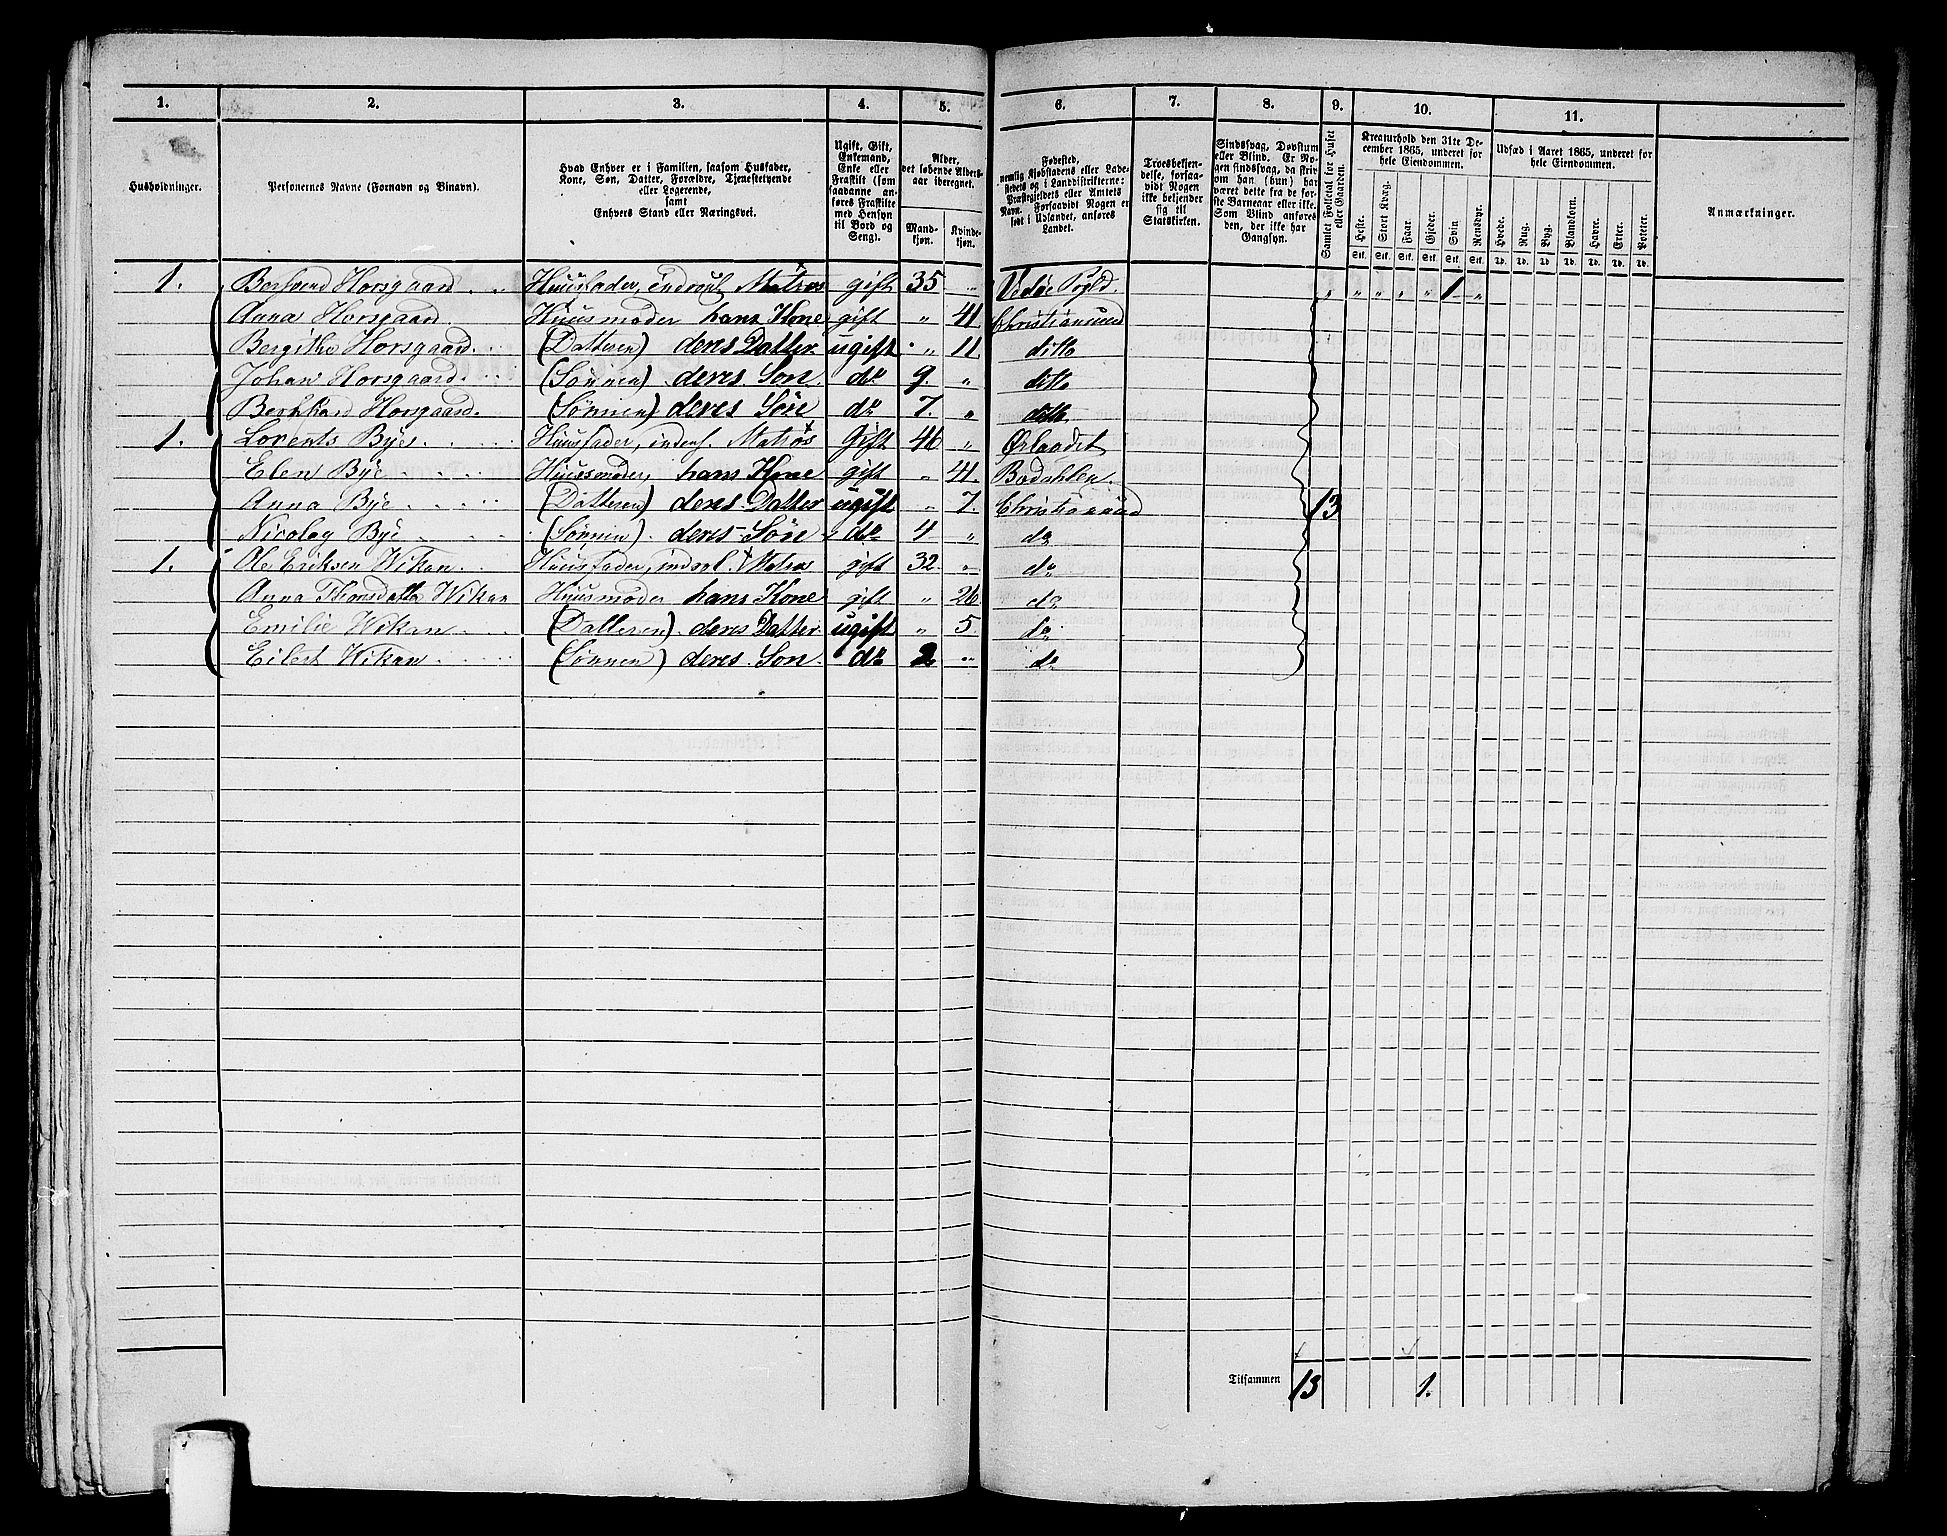 1. 2. 3. 4. 5. 6. 7. 8. 9. 10. 11.
Husholdninger.
Personernes Navne (Fornavn og Binavn).
Hvad Enhver er i Familien, saasom Husfader,
Kone, Søn, Datter, Forældre, Tjenestetyende
eller Logerende,
samt
Enhvers Stand eller Næringsvei.
Ugift, Gift,
Enkemand,
Enke eller
Fraskilt (som
saadanne an-
føres Fraskilte
med Hensyn
til Bord og
Seng).
Alder,
det løbende Alders-
aar iberegnet.
Mand-
kjøn.
Kvinde-
kjøn.
Fødested,
nemlig Kjøbstadens eller Lade-
stedets og i Landdistrikterne:
Præstegjeldets eller Annexets
Navn. Forsaavidt Nogen er
født i Udlandet, anføres
Landet.
Troesbekjen-
delse, forsaa-
vidt Nogen
ikke bekjender
sig til
Statskirken.
Sindssvag, Døvstum
eller Blind. Er No-
gen sindssvag, da skriv
om han (hun) har
været dette fra de før-
ste Barneaar eller ikke.
Som Blind anføres
den, der ikke har
Gangsyn.
Samlet Folketal for Huset
eller Gaarden.
Kreaturhold den 31te De-
cember 1865, underet for
hele Eiendommen.
Heste. Stort Kvæg. Faar. Gjeder. Svin. Rensdyr.
Stk. Stk. Stk. Stk. Stk. Stk.
Udsæd i Aaret 1865, underet for
hele Eiendommen.
Hvede. Rug. Byg. Blandkorn. Havre. Erter. Poteter.
Td. Td. Td. Td. Td. Td. Td.
Anmærkninger.
1. Horsgaard Huusfader, Matros gift 35 " " " " " 1 "
Anna Horsgaard Huusmoder hans Kone gift " 41. Christiansund
Horsgaard (Datteren) deres Datter ugift " 11. ditto
Johan Horsgaard (Sønnen) deres Søn do 9. " ditto
Horsgaard (Sønnen) deres Søn do 7. " ditto
1. Lorents Bye Huusfader, Matros Gift 46 "
Elen Bye Huusmoder, hans Kone gift " 41.
Anna Bye (Datteren) deres Datter ugift " 7. Christiansund 13
Nicolay Bye (Sønnen) deres Søn do 4 " do
1. Ole Eriksen Wikan Huusfader, Matros gift 32. " do
Anna Wikan Huusmoder hans Kone gift " 26. do
Emilie Wikan (Datteren) deres Datter ugift " 5. do
Eilert Wikan (Sønnen) deres Søn do 2 " do
Tilsammen 13 1.